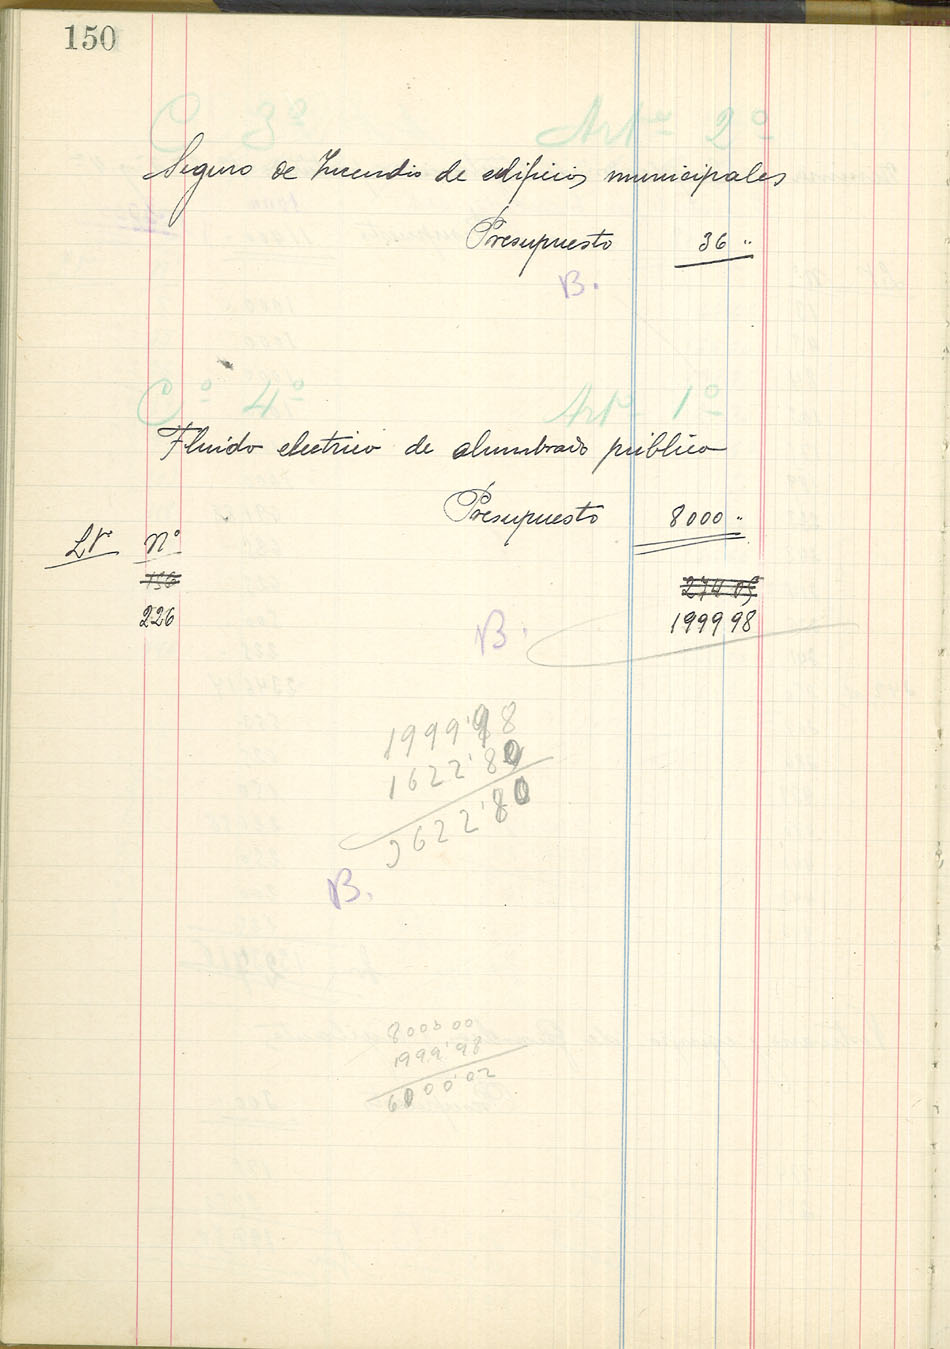 150
C 3º Artº 2º
Seguro de Incendio de edificios municipales
Presupuesto 36 "
B.
Cº 4º Artº 1º
Fluido electrico de alumbrado público
Presupuesto 8000 "
Lº Nº
226 1999 98
B.
1999'98
1622'80
3622'80
B.
8000 00
1999'98
6000'02